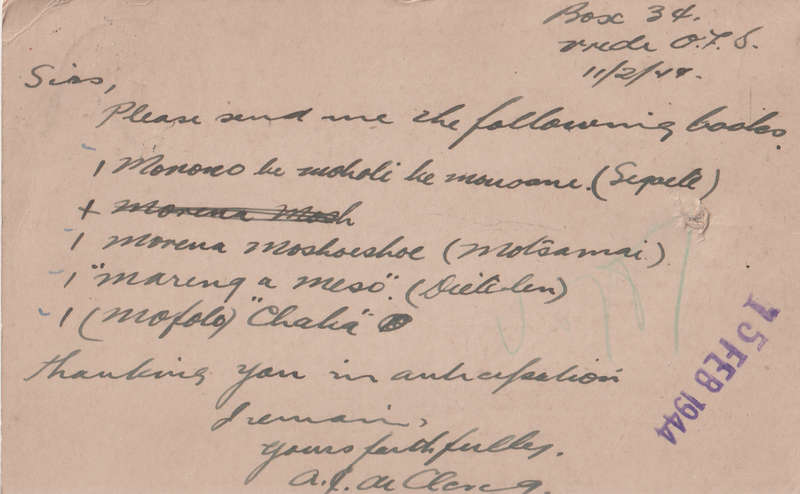 Box 34.
Vrede O.F.S.
11/2/44.
Sirs,
Please send me the following books.
1 Monono ke moholi ke mouoane. (Segoete)
1 Morena Mosh
1 Morena Moshoeshoe (Motšamai)
1 "Mareng a meso". (Dieterlen)
1 (Mofolo) "Chaka"
Thanking you in anticipation
I remain,
Yours faithfully.
A. de Clercq.
15 FEB 1944